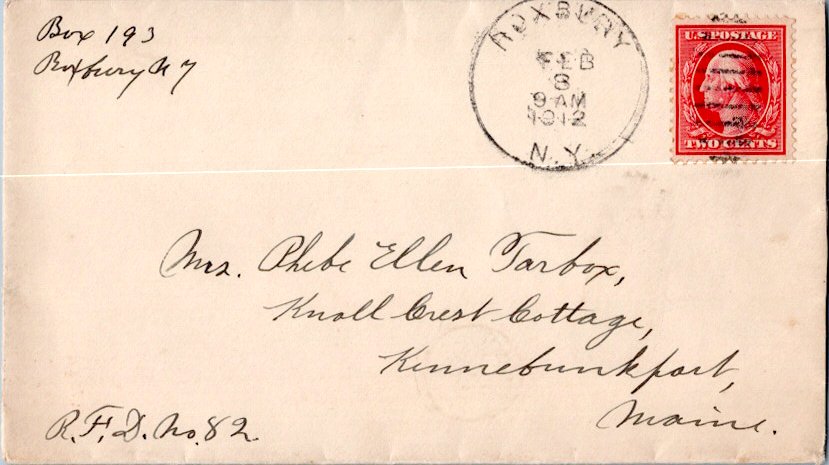 Box 193
Roxbury N Y
ROXBURY
FEB
8
9 AM
1912
N.Y.
U.S. POSTAGE
TWO CENTS
Mrs. Phebe Ellen Tarbox,
Knoll Crest Cottage,
Kennebunkport,
Maine.
R.F.D. No. 82